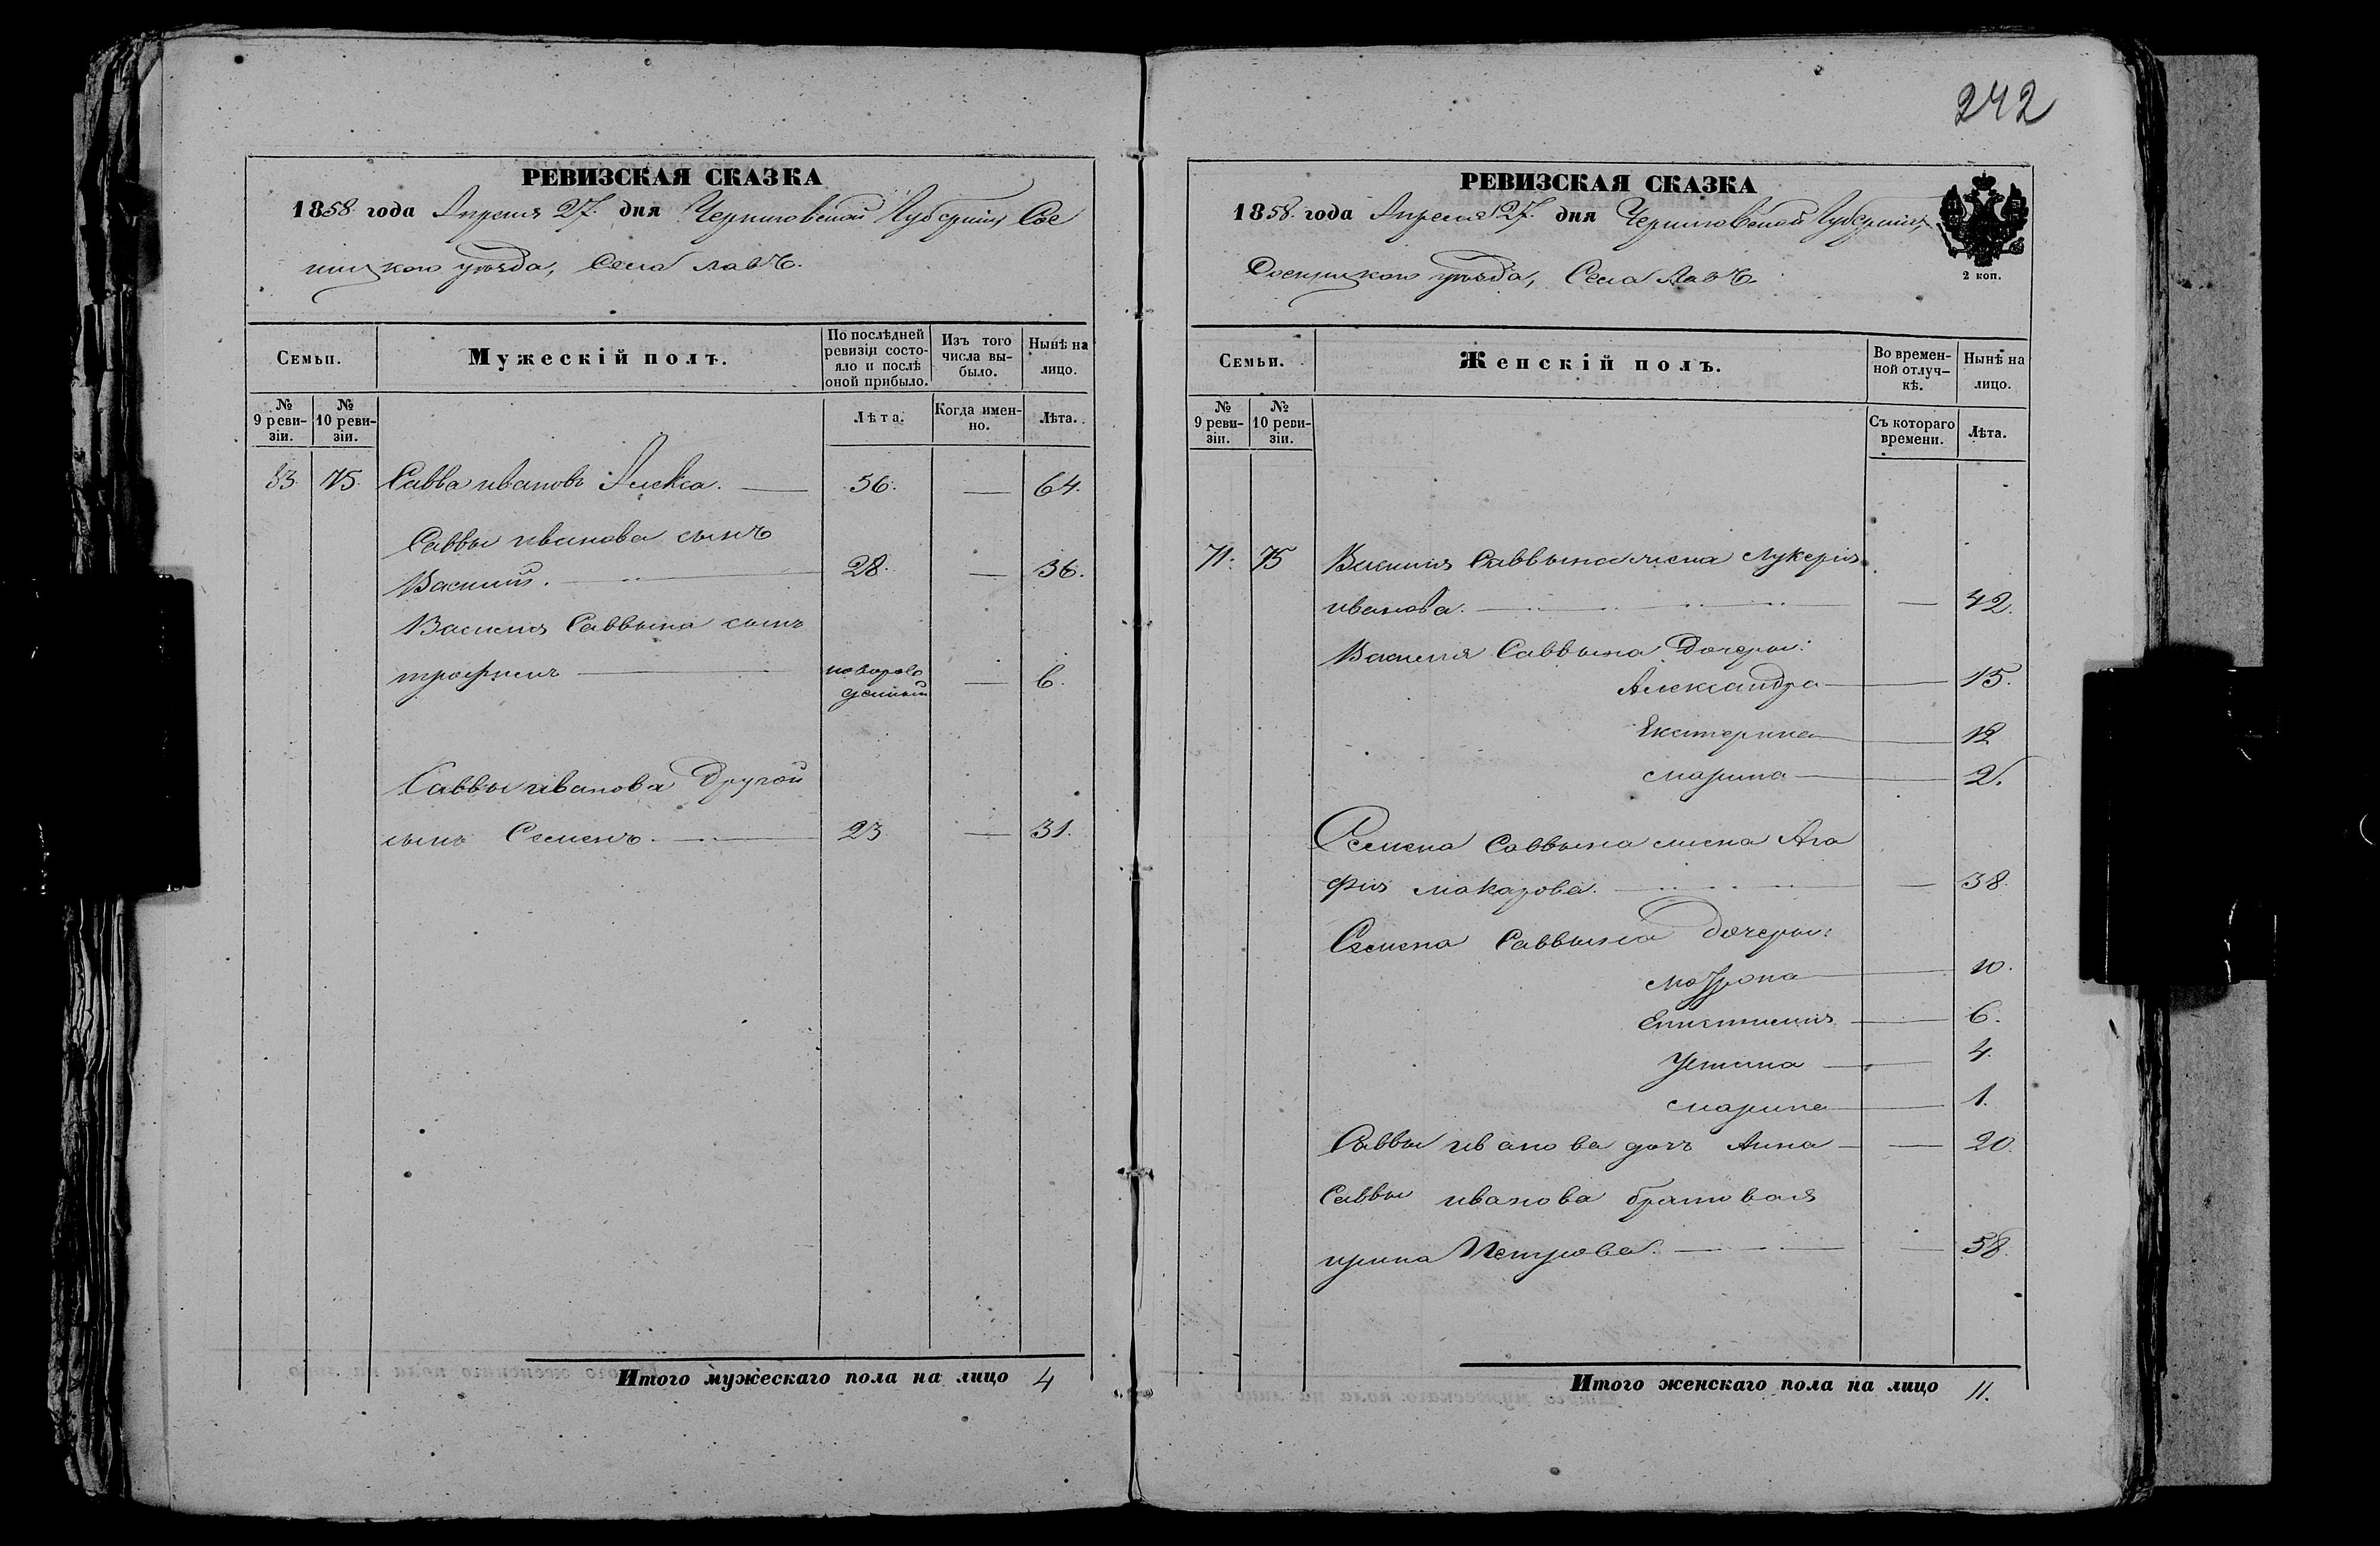 РЕВИЗСКАЯ СКАЗКА
1858 года Апреля 27. дня Черниговской Губернии, Сос
ницкого уѣзда, Села Лавъ.
Семьи.
Мужескій полъ.
По послѣдней ревизіи состояло и послѣ оной прибыло.
Изъ того числа выбыло.
Нынѣ на лицо.
№ 9 ревизіи.
№ 10 ревизіи.
Лѣта.
Когда именно.
Лѣта.
75. Савва ивановъ Алекса. 56. — 64.
Саввы иванова сынъ
Василий. 28. — 36.
Василия Саввына сынъ
трофимъ новорож
денный — 6.
Саввы иванова Другой
сынъ Семенъ. 23 — 31.
Итого мужескаго пола на лицо 4
242
РЕВИЗСКАЯ СКАЗКА
1858. года Апреля 27. дня Черниговской Губернии,
Сосницкого уѣзда, Села Лавъ.
2 коп.
Семьи.
Женскій полъ.
Во временной отлучкѣ.
Нынѣ на лицо.
№ 9 ревизіи.
№ 10 ревизіи.
Съ котораго времени.
Лѣта.
71. 75 Василия Саввына жена Лукерия
иванова. — 42.
Василия Саввына Дочеры:
Александра — 15.
Екатерина — 12
марина — 2.
Семена Саввына жена Ага
фия макарова. — 38.
Семена Саввына Дочеры:
матрона — 10.
Епистимия — 6.
Устина — 4.
марина — 1.
Саввы иванова дочъ Анна — 20.
Саввы иванова братовая
ирина Петрова. — 58.
Итого женскаго пола на лицо 11.